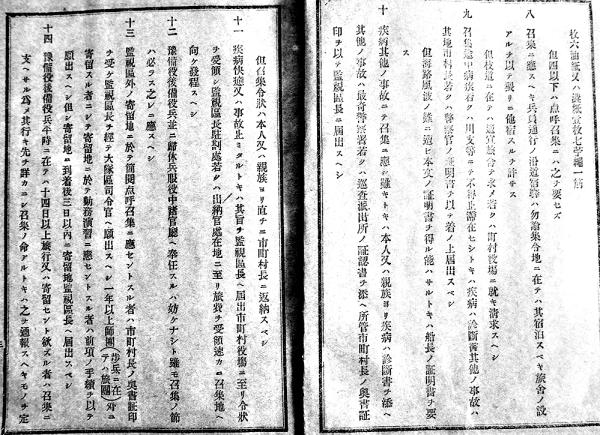 枚六油紙又ハ澁紙壹枚七苧繩一筋
但四以下ハ点呼召集ニハ之ヲ要セズ
八 召集ニ應スヘキ兵員通行ノ沿道宿驛ハ勿論集合地ニ在テハ其宿泊スヘキ旅舍ノ設
アルヲ以テ猥リニ他宿スルヲ許サス
但枝道ニ在テハ適宜旅舍ヲ求メ若クハ町村役場ニ就キ請求スヘシ
九 召集途中病痾若クハ川支等ニテ不得止滯在セシトキハ疾病ハ診斷書其他ノ事故ハ
其地市村長若クハ警察官ノ証明書ヲ以テ着ノ上届出スベシ
但海路風波ノ難ニ遭ヒ本文ノ証明書ヲ得ル能ハサルトキハ船長ノ証明書ヲ要
ス
十 疾病其他ノ事故ニテ召集ニ應シ難キトキハ本人又ハ親族ヨリ疾病ハ診斷書ヲ添ヘ
其他ノ事故ハ最寄警察署若クハ巡査派出所ノ証認書ヲ添ヘ所管市町村長ノ奥書証
印ヲ以テ監視區長ニ届出スヘシ
但召集令狀ハ本人又ハ親族ヨリ直チニ市町村長ニ返納スベシ
十一 疾病快癒又ハ事故止ミタルトキハ其旨ヲ監視區長ヘ届出市町村役場ニ至リ令狀
ヲ受領シ監視區長駐割處若クハ出納官處在地ニ至リ旅費ヲ受領速カニ召集地ヘ
向ケ發程スヘシ
十二 豫備役後備役兵並ニ歸休兵服役中諸官廳ヘ奉任スルハ妨ケナシト雖モ召集ノ節
ハ必ラス之レニ應スヘシ
十三 監視區外ノ寄留地ニ於テ簡閲点呼召集ニ應セントスル者ハ市町村長ノ奥書証印
ヲ受ケ監視區長ヲ經テ大隊區司令官ヘ願出スヘシ一年以上師團(歩兵ニ在テハ旅團)外ニ
寄留スル者ニシテ寄留地ニ於テ勤務演習ニ應セントスル者ハ前項ノ手續ヲ以テ
願出スヘシ但シ寄留地ニ到着後三日以内ニ寄留地監視區長ヘ届出スベシ
十四 豫備役後備役兵平時ニ在テハ十四日以上旅行又ハ寄留セント欲スル者ハ召集ニ
支ヘサル爲メ其行キ先ヲ詳カニシ召集ノ命アルトキハ之ヲ通報スヘキモノヲ定